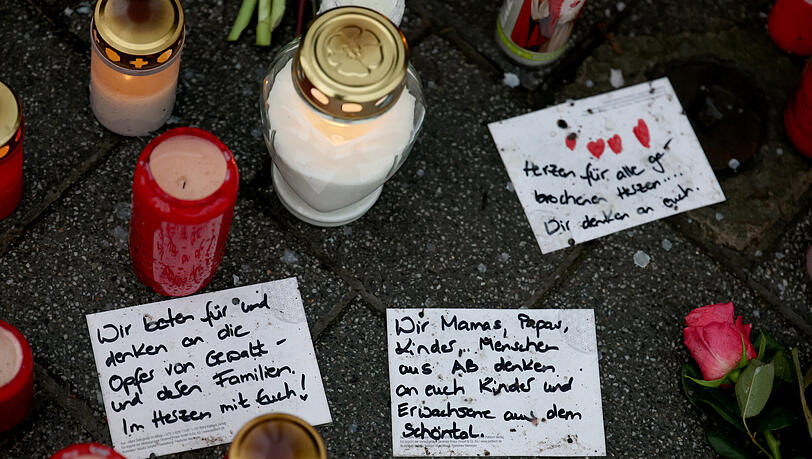 Herzen für alle ge-
brochene Herzen....
Wir denken an euch.
Wir beten für und
denken an die
Opfer von Gewalt -
und deren Familien.
Im Herzen mit Euch!
Wir Mamas, Papas,
Kinder,.. Menschen
aus AB denken
an euch Kinder und
Erwachsene aus dem
Schöntal.